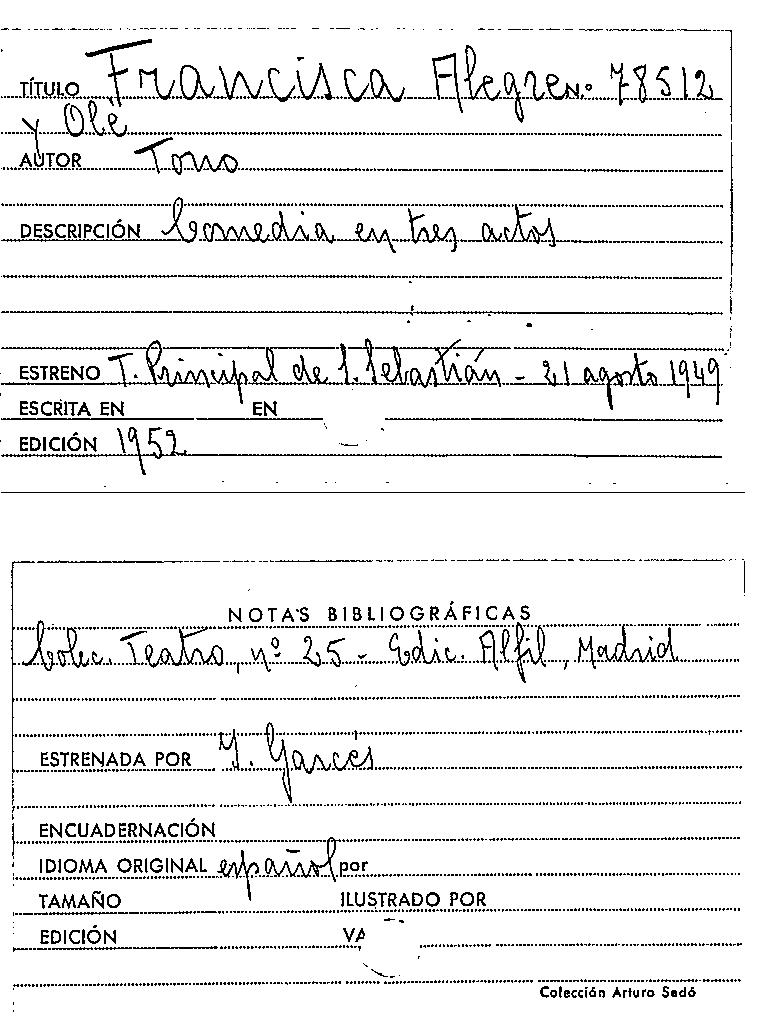 TÍTULO Francisca Alegre N.º 78512
y Olé
AUTOR Tono
DESCRIPCIÓN Comedia en tres actos
ESTRENO T. Principal de S. Sebastián - 21 agosto 1949
ESCRITA EN EN
EDICIÓN 1952
NOTAS BIBLIOGRÁFICAS
Colec. Teatro, nº 25 - Edic. Alfil, Madrid
ESTRENADA POR I. Garcés
ENCUADERNACIÓN
IDIOMA ORIGINAL español por
TAMAÑO ILUSTRADO POR
EDICIÓN VA
Colección Arturo Sedó